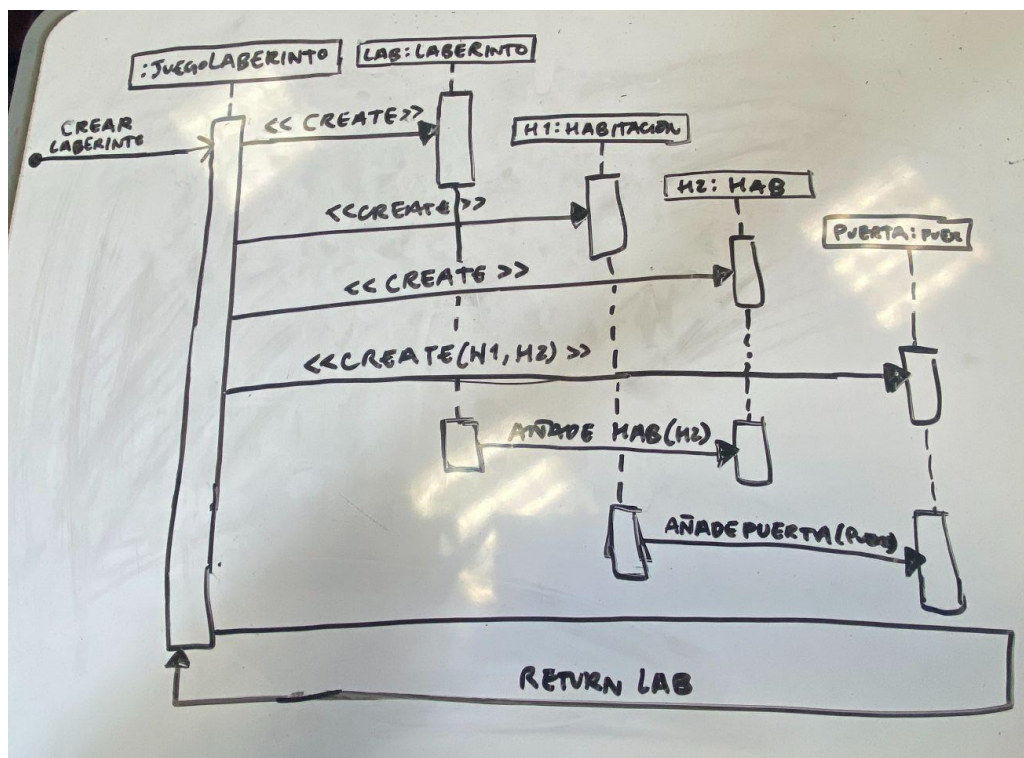 :JUEGOLABERINTO
LAB:LABERINTO
CREAR
LABERINTO
<< CREATE>>
H1:HABITACIÓN
<<CREATE>>
H2: HAB
<< CREATE >>
PUERTA:
<<CREATE(H1, H2)>>
AÑADE HAB(H2)
AÑADEPUERTA(
RETURN LAB